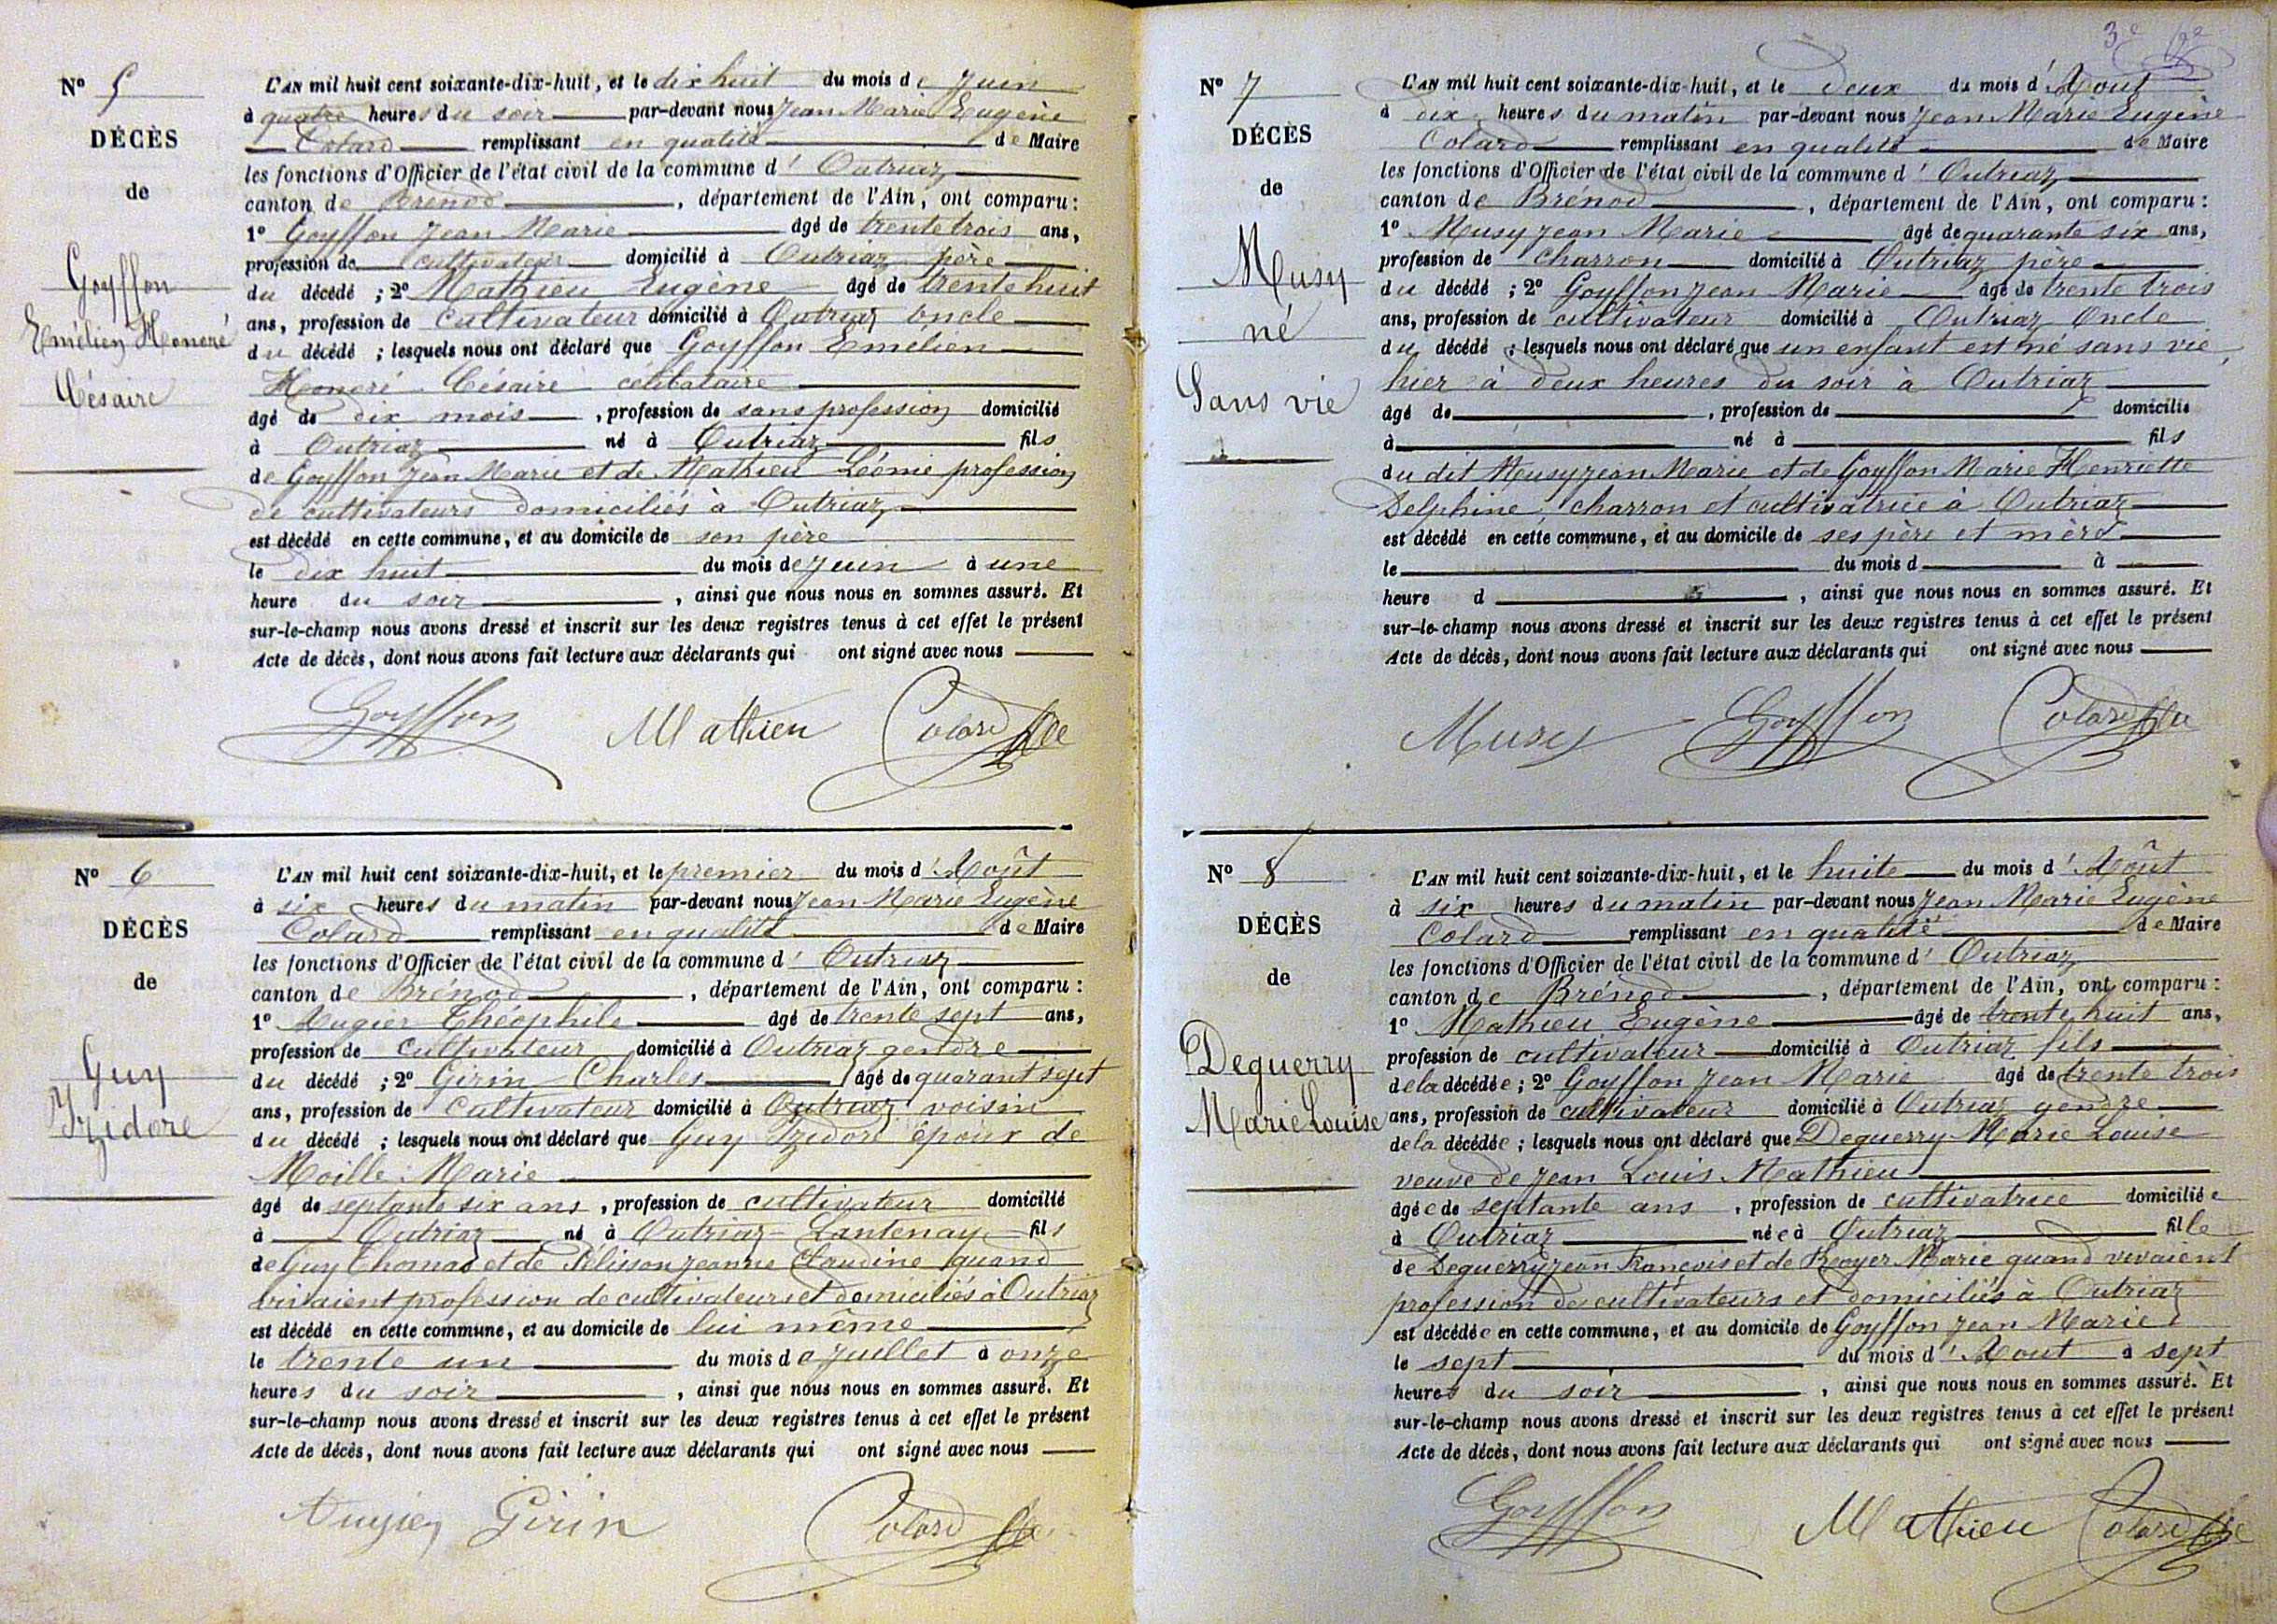 N° 5
DÉCÈS
de
Goyffon
Emélien Honoré
Césaire
L'AN mil huit cent soixante-dix-huit, et le dix huit du mois de Juin
à quatre heures du soir par-devant nous Jean Marie Eugène
Colard remplissant en qualité de Maire
les fonctions d'Officier de l'état civil de la commune d'Outriaz
canton de Brénod, département de l'Ain, ont comparu :
1° Goyffon Jean Marie âgé de trente trois ans,
profession de cultivateur domicilié à Outriaz père
du décédé ; 2° Mathieu Eugène âgé de trente huit
ans, profession de cultivateur domicilié à Outriaz oncle
du décédé ; lesquels nous ont déclaré que Goyffon Emélien
Honoré Césaire célibataire
âgé de dix mois, profession de sans profession domicilié
à Outriaz né à Outriaz fils
de Goyffon Jean Marie et de Mathieu Léonie profession
de cultivateurs domiciliés à Outriaz
est décédé en cette commune, et au domicile de son père
le dix huit du mois de Juin à une
heure du soir, ainsi que nous nous en sommes assuré. Et
sur-le-champ nous avons dressé et inscrit sur les deux registres tenus à cet effet le présent
Acte de décès, dont nous avons fait lecture aux déclarants qui ont signé avec nous
Goyffon Mathieu Colard
N° 6
DÉCÈS
de
Guy
Izidore
L'AN mil huit cent soixante-dix-huit, et le premier du mois d'Août
à six heures du matin par-devant nous Jean Marie Eugène
Colard remplissant en qualité de Maire
les fonctions d'Officier de l'état civil de la commune d'Outriaz
canton de Brénod, département de l'Ain, ont comparu :
1° Augier Théophile âgé de trente sept ans,
profession de cultivateur domicilié à Outriaz gendre
du décédé ; 2° Girin Charles âgé de quarant sept
ans, profession de cultivateur domicilié à Outriaz voisin
du décédé ; lesquels nous ont déclaré que Guy Izidore époux de
Moille Marie
âgé de septante six ans, profession de cultivateur domicilié
à Outriaz né à Outriaz-Lantenay fils
de Guy Thomas et de Pélisson Jeanne Claudine quand
vivaient profession de cultivateurs et domiciliés à Outriaz
est décédé en cette commune, et au domicile de lui même
le trente un du mois de Juillet à onze
heures du soir, ainsi que nous nous en sommes assuré. Et
sur-le-champ nous avons dressé et inscrit sur les deux registres tenus à cet effet le présent
Acte de décès, dont nous avons fait lecture aux déclarants qui ont signé avec nous
Augier Girin Colard
3e
N° 7
DÉCÈS
de
Musy
né
Sans vie
L'AN mil huit cent soixante-dix-huit, et le deux du mois d'Aout
à dix heures du matin par-devant nous Jean Marie Eugène
Colard remplissant en qualité de Maire
les fonctions d'Officier de l'état civil de la commune d'Outriaz
canton de Brénod, département de l'Ain, ont comparu :
1° Musy Jean Marie âgé de quarante six ans,
profession de Charron domicilié à Outriaz père
du décédé ; 2° Goyffon Jean Marie âgé de trente trois
ans, profession de cultivateur domicilié à Outriaz Oncle
du décédé ; lesquels nous ont déclaré que un enfant est né sans vie
hier à deux heures du soir à Outriaz
âgé de , profession de domicilié
à né à fils
du dit Musy Jean Marie et de Goyffon Marie Henriette
Delphine, charron et cultivatrice à Outriaz
est décédé en cette commune, et au domicile de ses père et mère
le du mois d à
heure d , ainsi que nous nous en sommes assuré. Et
sur-le-champ nous avons dressé et inscrit sur les deux registres tenus à cet effet le présent
Acte de décès, dont nous avons fait lecture aux déclarants qui ont signé avec nous
Musy Goyffon Colard
N° 8
DÉCÈS
de
Deguerry
Marie Louise
L'AN mil huit cent soixante-dix-huit, et le huite du mois d'Août
à six heures du matin par-devant nous Jean Marie Eugène
Colard remplissant en qualité de Maire
les fonctions d'Officier de l'état civil de la commune d'Outriaz
canton de Brénod, département de l'Ain, ont comparu :
1° Mathieu Eugène âgé de trente huit ans,
profession de cultivateur domicilié à Outriaz fils
de la décédée ; 2° Goyffon Jean Marie âgé de trente trois
ans, profession de cultivateur domicilié à Outriaz gendre
de la décédée ; lesquels nous ont déclaré que Deguerry Marie Louise
veuve de Jean Louis Mathieu
âgée de septante ans, profession de cultivatrice domiciliée
à Outriaz née à Outriaz fille
de Deguerry Jean François et de Marie quand vivaient
profession de cultivateurs et domiciliés à Outriaz
est décédée en cette commune, et au domicile de Goyffon Jean Marie
le sept du mois d'Aout à sept
heures du soir, ainsi que nous nous en sommes assuré. Et
sur-le-champ nous avons dressé et inscrit sur les deux registres tenus à cet effet le présent
Acte de décès, dont nous avons fait lecture aux déclarants qui ont signé avec nous
Goyffon Mathieu Colard